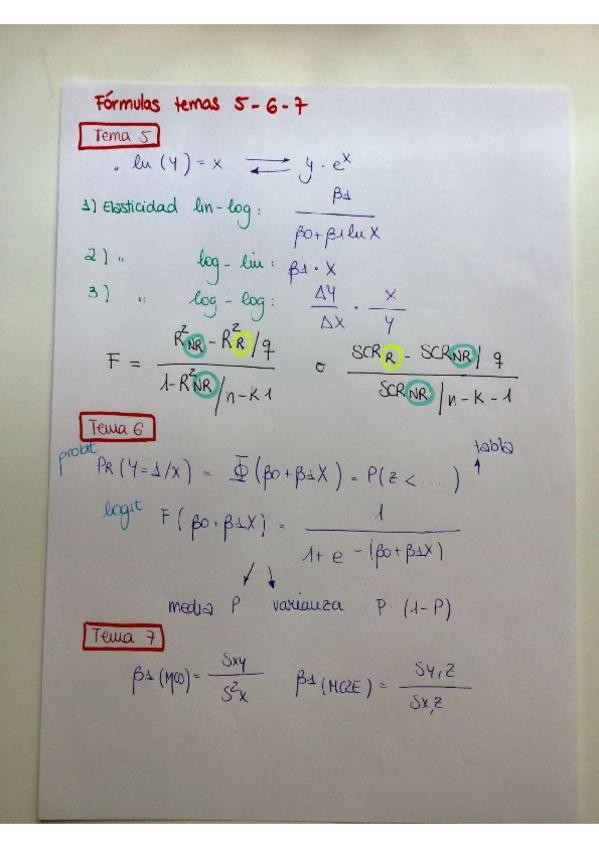 Fórmulas temas 5-6-7
Tema 5
. ln (Y) = x ⇄ y · e^x
1) Elasticidad lin-log: β1 / β0+β1lnX
2) " log-lin: β1 · X
3) " log-log: ΔY/ΔX · X/Y
F = R²NR - R²R / q / 1-R²NR / n-k 1 o SCR R - SCR NR / q / SCR NR / n-k-1
Tema 6
probit PR (Y=1/X) = Φ (β0+β1X) = P(Z < ....) tabla
logit F (β0+β1X) = 1 / 1+ e -(β0+β1X)
media P varianza P · (1-P)
Tema 7
β1 (MCO) = Sxy / S²x β1 (MC2E) = Sy,z / Sx,z